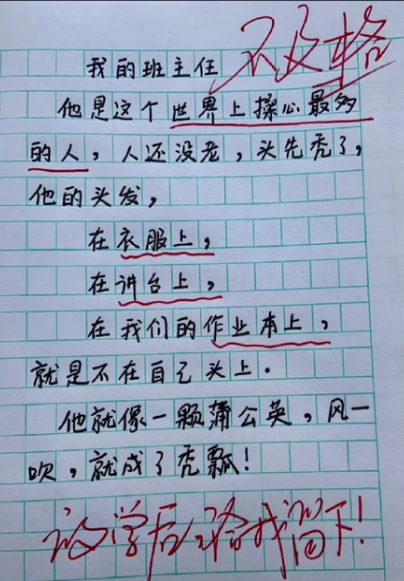 不及格
我的班主任
他是这个世界上操心最多
的人，人还没老，头先秃了，
他的头发，
在衣服上，
在讲台上，
在我们的作业本上，
就是不在自己头上。
他就像一颗蒲公英，风一
吹，就成了秃瓢！
放学后，给我留下！